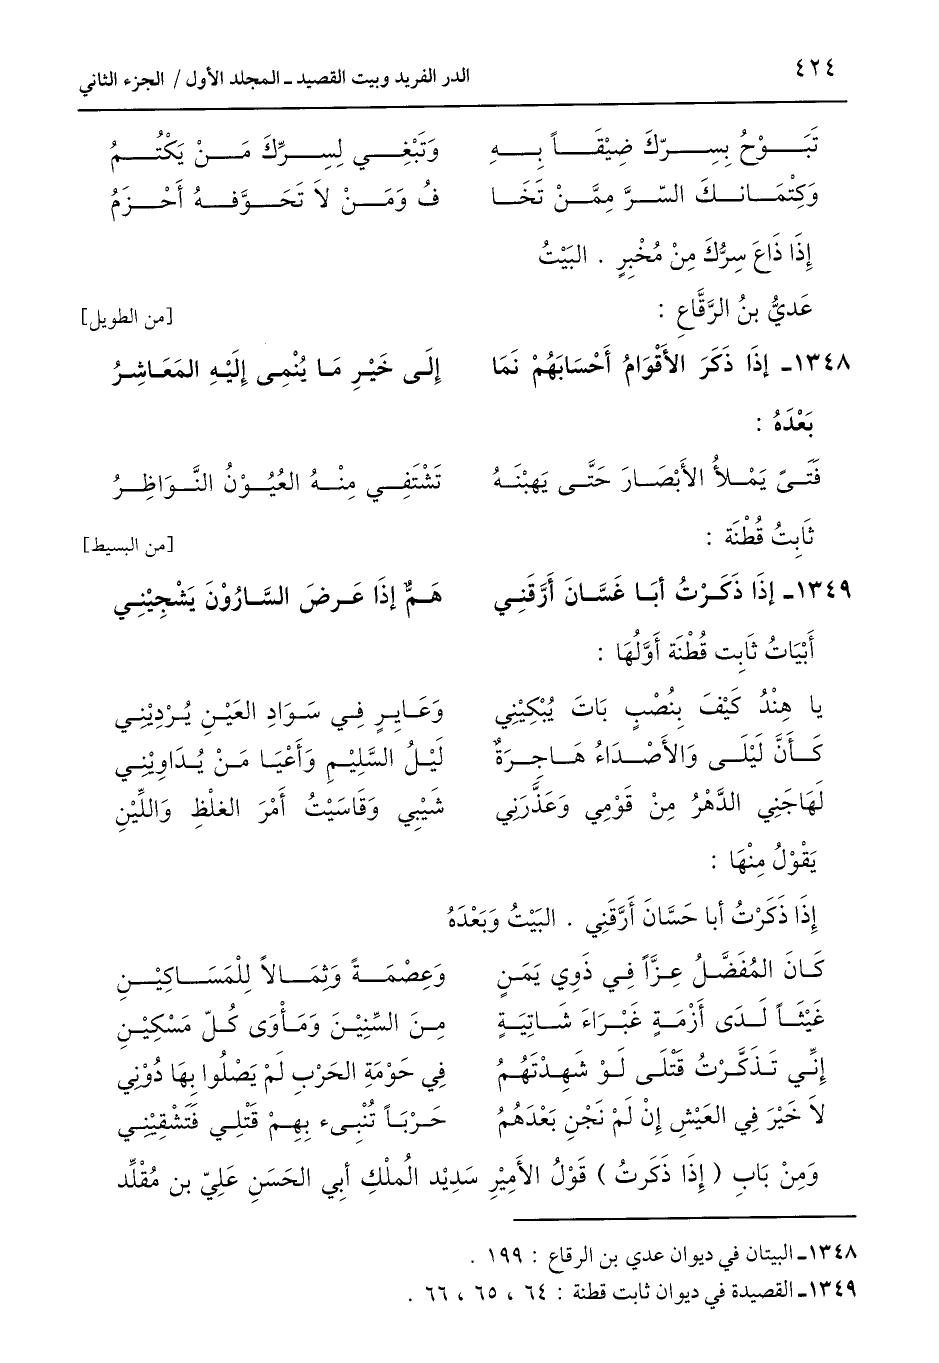 ٤٢٤ الدر الفريد وبيت القصيد ـ المجلد الأول / الجزء الثاني
تَبُوْحُ بِسِرِّكَ ضِيْقَاً بِهِ وَتَبْغِي لِسِرِّكَ مَنْ يَكْتُمُ
وَكِتْمَانكَ السّرَّ مِمَّنْ تَخَا فُ وَمَنْ لاَ تَخَوَّفهُ أَحْزَمُ
إِذَا ذَاعَ سِرُّكَ مِنْ مُخْبِرٍ . البَيْتُ
عَديُّ بنُ الرَّقَّاعِ : [من الطويل]
١٣٤٨ـ إِذَا ذَكَرَ الأَقْوَامُ أَحْسَابَهُمْ نَمَا إِلَى خَيْرِ مَا يُنْمِى إِلَيْهِ المَعَاشِرُ
بَعْدَهُ :
فَتَىً يَمْلأُ الأَبْصَارَ حَتَّى يَهِبْنَهُ تَشْتَفِي مِنْهُ العُيُوْنُ النَّوَاظِرُ
ثَابِتُ قُطْنَة : [من البسيط]
١٣٤٩ـ إِذَا ذَكَرْتُ أبَا غَسَّانَ أَرَّقَنِي هَمٌّ إِذَا عَرضَ السَّارُوْنَ يَشْجِيْنِي
أَبْيَاتُ ثَابِت قُطْنَة أَوَّلُهَا :
يا هِنْدُ كَيْفَ بِنُصْبٍ بَاتَ يُبْكِيْنِي وَعَايِرٍ فِي سَوَادِ العَيْنِ يُرْدِيْنِي
كَأَنَّ لَيْلَى وَالأَصْدَاءُ هَاجِرَةٌ لَيْلُ السَّلِيْمِ وَأَعْيَا مَنْ يُدَاوِيْنِي
لهَاجَنِي الدَّهْرُ مِنْ قَوْمِي وَعَذَّرَنِي شَيْبِي وَقَاسَيْتُ أَمْرَ الغلْظِ وَاللِّيْنِ
يَقُوْلُ مِنْهَا :
إِذَا ذَكَرْتُ أبا حَسَّانَ أَرَّقَنِي . البَيْتُ وَبَعْدَهُ
كَانَ المُفَضَّلُ عِزَّاً فِي ذَوِي يَمَنٍ وَعِصْمَةً وَثِمَالاً لِلْمَسَاكِيْنِ
غَيْثَاً لَدَى أَزْمَةٍ غَبْرَاءَ شَاتِيَةٍ مِنَ السِّنِيْنَ وَمَأْوَى كُلّ مَسْكِيْنِ
إِنِّي تَذَكَّرْتُ قَتْلَى لَوْ شَهِدْتَهُمُ فِي حَوْمَةِ الحَرْبِ لَمْ يَصْلُوا بِهَا دُوْنِي
لاَ خَيْرَ فِي العَيْشِ إِنْ لَمْ نَجْنِ بَعْدَهُمُ حَرْبَاً تُنْبِىء بِهِمْ قَتْلِي فَتَشْقِيْنِي
وَمِنْ بَابِ ( إِذَا ذَكَرتُ ) قَوْلُ الأَمِيْرِ سَدِيْد المُلْكِ أبي الحَسَنِ عَلِيّ بن مُقْلِّد
١٣٤٨ـ البيتان في ديوان عدي بن الرقاع : ١٩٩ .
١٣٤٩ـ القصيدة في ديوان ثابت قطنة : ٦٤ ، ٦٥ ، ٦٦ .